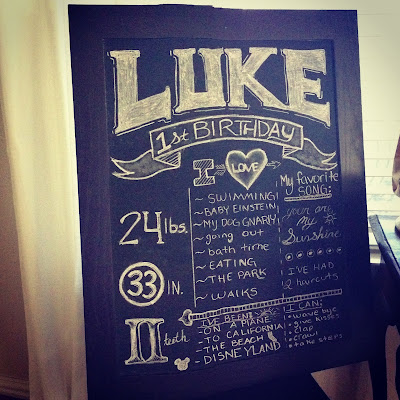 LUKE
1st BIRTHDAY
I LOVE
~ SWIMMING!
~ BABY EINSTEIN
~ MY DOG GNARLY
~ going out
~ bath time
~ EATING
~ THE PARK
~ WALKS
My favorite
SONG:
you are
my
Sunshine
I'VE HAD
2 haircuts
24 lbs.
33 IN.
11 teeth
I'VE BEEN:
- ON A PLANE
- TO CALIFORNIA
- THE BEACH
- DISNEYLAND
I CAN:
• wave bye
• give kisses
• clap
• crawl
• take steps